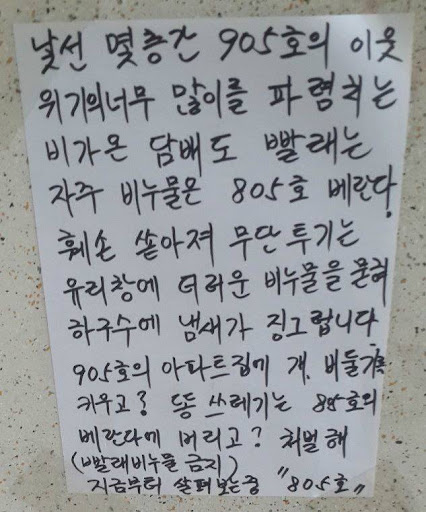 낯선 몇층간 905호의 이웃
위기의너무 많이를 파렴치는
비가온 담배도 빨래는
자주 비누물은 805호 베란다.
훼손 쏟아져 무단투기는
유리창에 더러운 비누물을 묻혀
하구수에 냄새가 징그럽니다
905호의 아파트집에 개. 비둘기를
키우고? 똥 쓰레기는 805호의
베란다에 버리고? 처벌해
(빨래비누물 금지)
지금부터 살펴보는중 "805호"